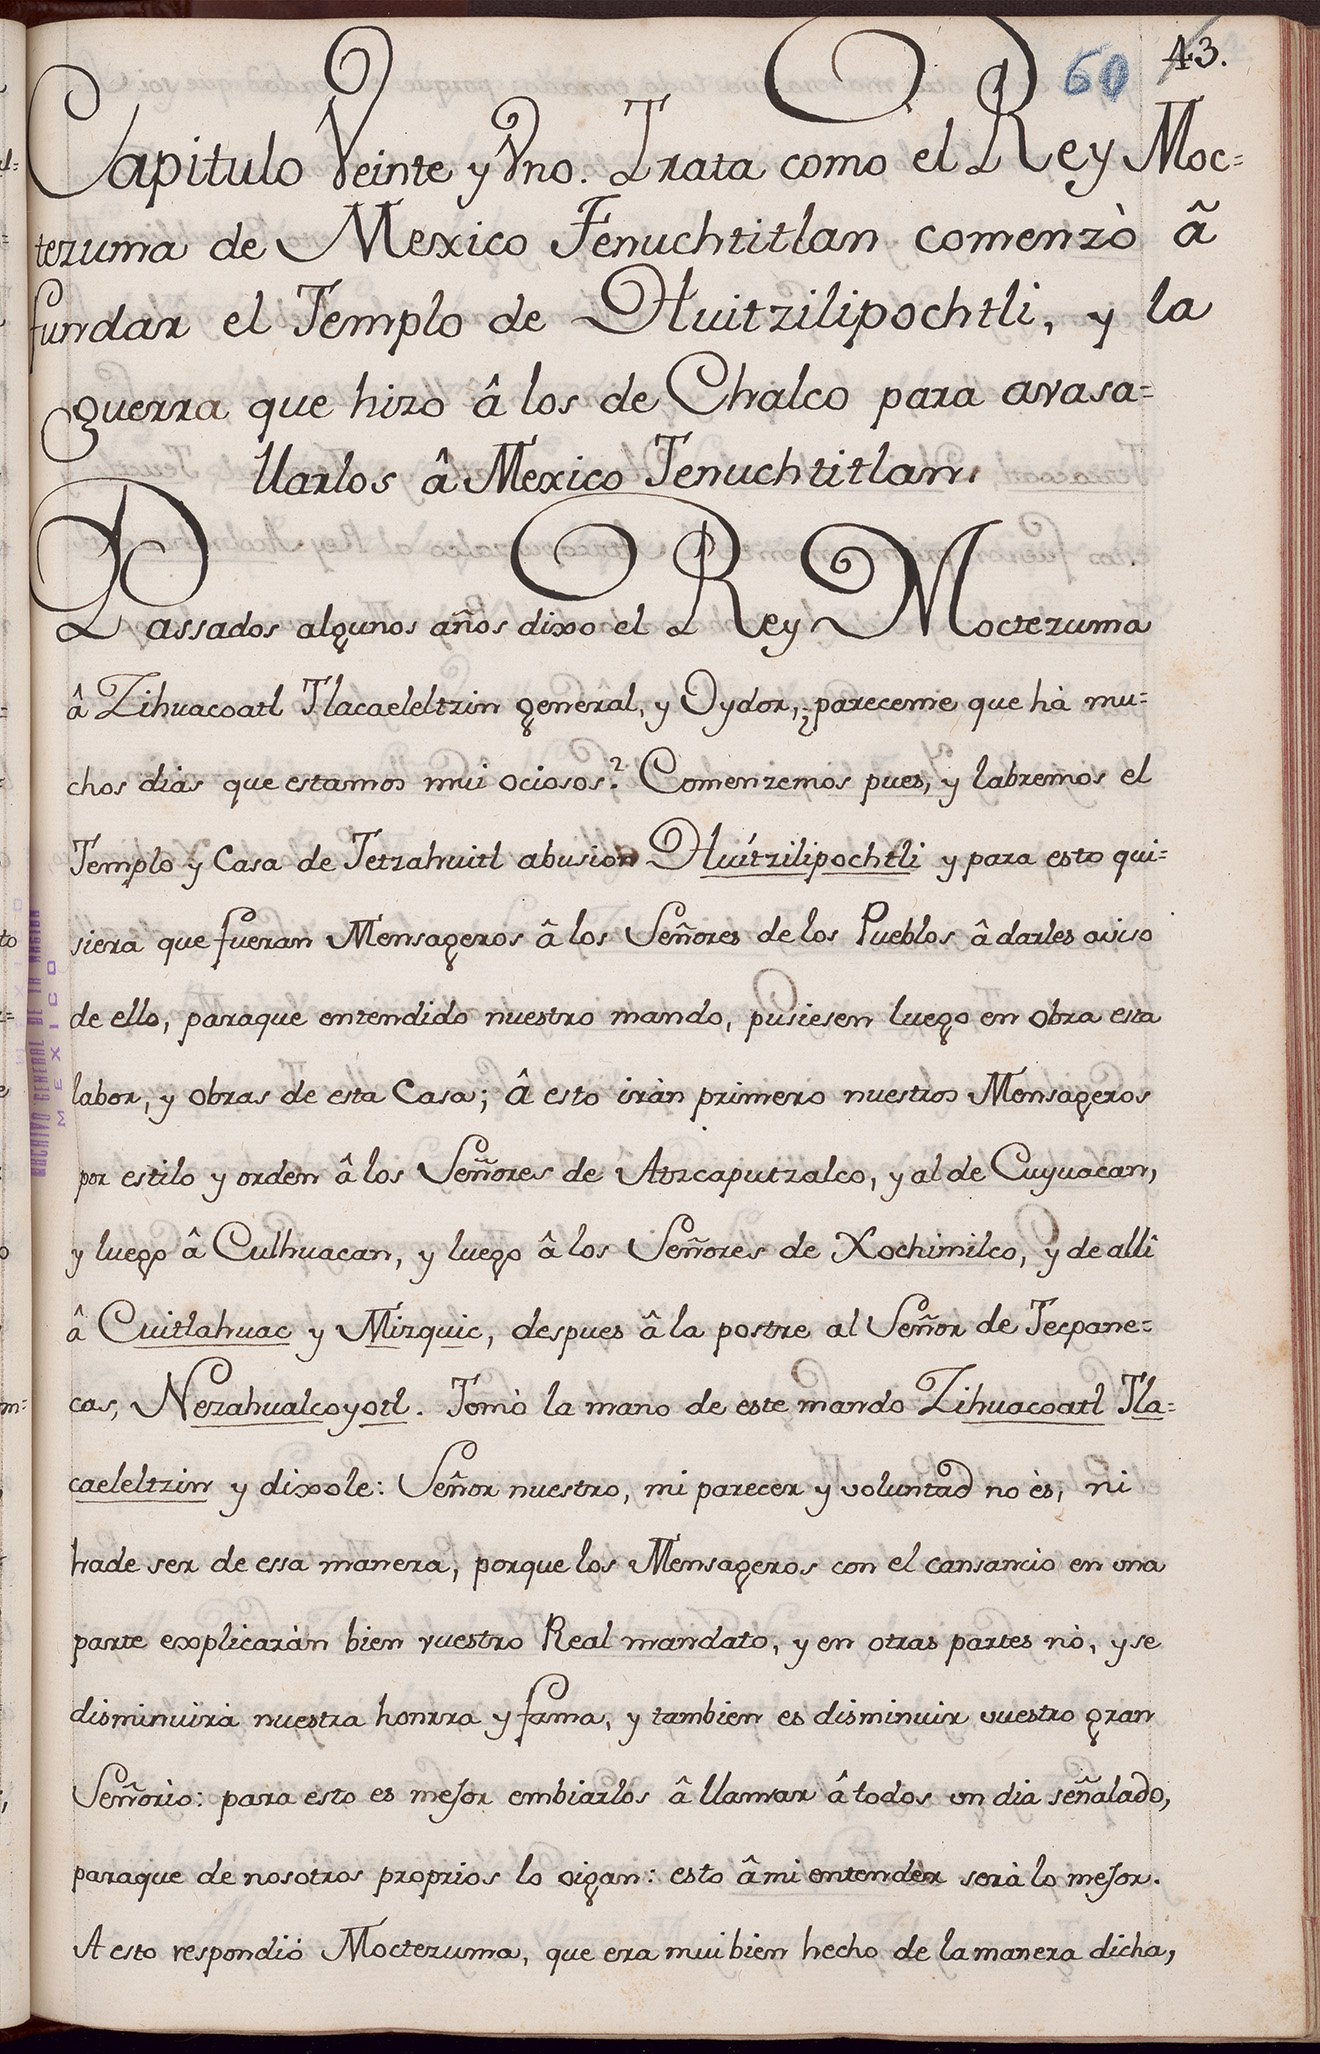 60 43.
Capitulo Veinte y Vno. Trata como el Rey Moc=
tezuma de Mexico Tenuchtitlan comenzò ã
fundar el Templo de Huitzilipochtli, y la
guerra que hizo â los de Chalco para avasa=
llarlos â Mexico Tenuchtitlan.
Passados algunos años dixo el Rey Moctezuma
â Zihuacoatl Tlacaeleltzin general, y Oydor, ¿pareceme que hà mu=
chos dias que estamos mui ociosos? Comenzemos pues, y labremos el
Templo y Casa de Tetzahuitl abusion Huitzilipochtli y para esto qui=
siera que fueran Mensageros â los Señores de los Pueblos â darles aviso
de ello, paraque entendido nuestro mando, pusiesen luego en obra esta
labor, y obras de esta Casa; â esto iràn primero nuestros Mensageros
por estilo y orden â los Señores de Atzcaputzalco, y al de Cuyuacan,
y luego â Culhuacan, y luego â los Señores de Xochimilco, y de alli
â Cuitlahuac y Mizquic, despues â la postre al Señor de Tecpane=
cas, Nezahualcoyotl. Tomò la mano de este mando Zihuacoatl Tla=
caeleltzin y dixole: Señor nuestro, mi parecer y voluntad no ès, ni
hade ser de essa manera, porque los Mensageros con el cansancio en una
parte explicaràn bien vuestro Real mandato, y en otras partes nò, y se
disminuirà nuestra honrra y fama, y tambien es disminuir vuestro gran
Señorio: para esto es mejor embiarlos â llamar â todos un dia señalado,
paraque de nosotros proprios lo oigan: esto â mi entender serà lo mejor.
A esto respondiò Moctezuma, que era mui bien hecho de la manera dicha,
ARCHIVO GENERAL DE LA NACION
MEXICO